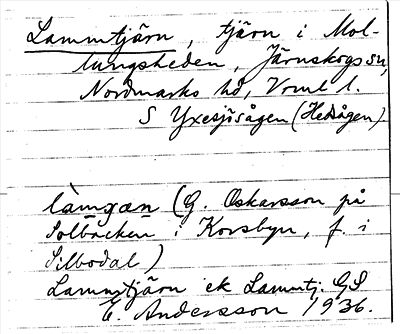 Lammtjärn, tjärn i Mol-
lungsheden, Järnskogs sn,
Nordmarks hd, Vrml l.
S Yxesjösågen (Hedsågen).
làmɣæn (G. Oskarsson på
Solbacken i Korsbyn, f. i
Silbodal)
Lammtjärn ek Lammtj. GS
E. Andersson 1936.